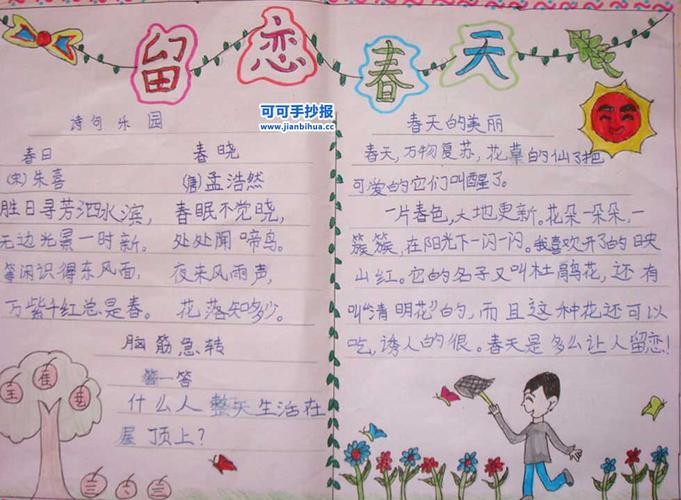 留恋春天
可可手抄报
www.jianbihua.cc
诗句乐园
春日
(宋)朱喜
胜日寻芳泗水滨，
无边光景一时新。
闲识得东风面，
万紫千红总是春。
春晓
(唐)孟浩然
春眠不觉晓，
处处闻啼鸟。
夜来风雨声，
花落知多少。
脑筋急转
答一答
什么人整天生活在
屋顶上？
春天的美丽
春天，万物复苏，花草的仙子把
可爱的它们叫醒了。
一片春色，大地更新。花朵一朵朵，一
簇簇，在阳光下一闪一闪。我喜欢开了的映
山红。它的名子又叫杜鹃花，还有
叫“清明花”的，而且这种花还可以
吃，诱人的很。春天是多么让人留恋！